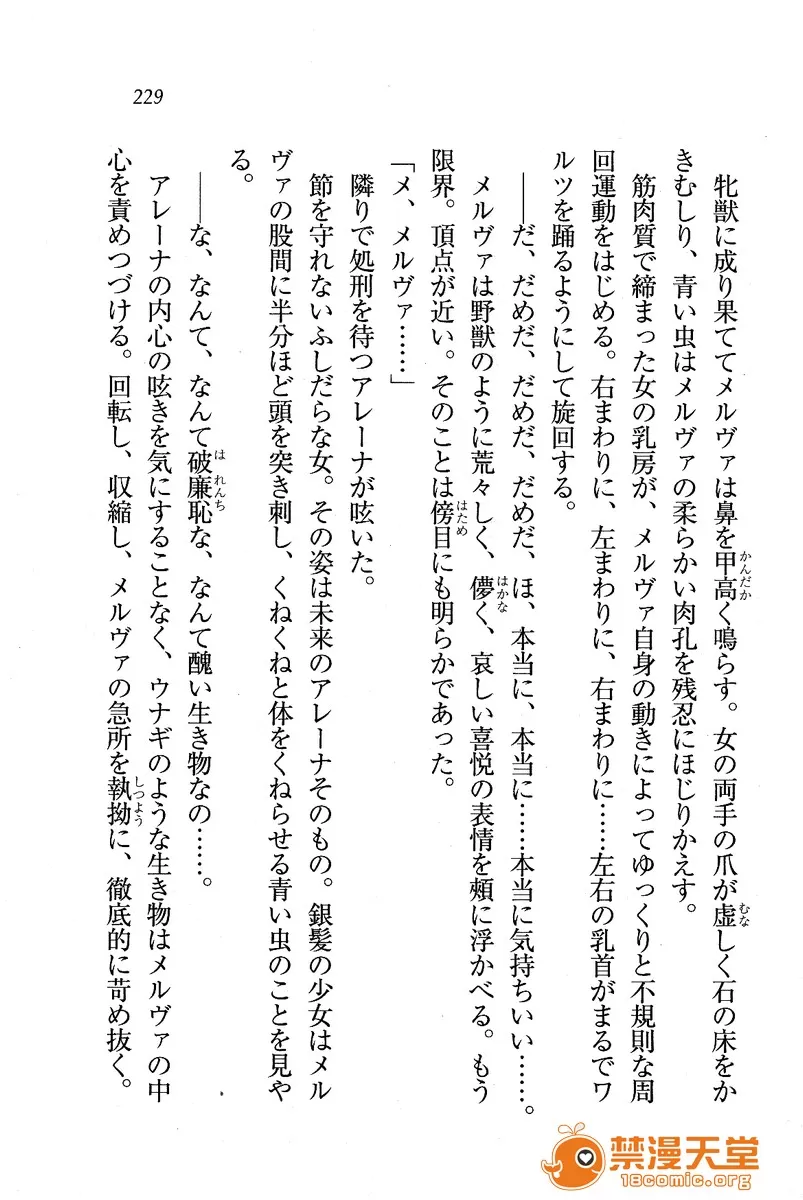 229
牝獣に成り果ててメルヴァは鼻を甲高く鳴らす。女の両手の爪が虚しく石の床をか
きむしり、青い虫はメルヴァの柔らかい肉孔を残忍にほじりかえす。
筋肉質で締まった女の乳房が、メルヴァ自身の動きによってゆっくりと不規則な周
回運動をはじめる。右まわりに、左まわりに、右まわりに……左右の乳首がまるでワ
ルツを踊るようにして旋回する。
――だ、だめだ、だめだ、だめだ、ほ、本当に、本当に……本当に気持ちいい……。
メルヴァは野獣のように荒々しく、儚く、哀しい喜悦の表情を頰に浮かべる。もう
限界。頂点が近い。そのことは傍目にも明らかであった。
「メ、メルヴァ……」
隣りで処刑を待つアレーナが呟いた。
節を守れないふしだらな女。その姿は未来のアレーナそのもの。銀髪の少女はメル
ヴァの股間に半分ほど頭を突き刺し、くねくねと体をくねらせる青い虫のことを見や
る。
――な、なんて、なんて破廉恥な、なんて醜い生き物なの……。
アレーナの内心の呟きを気にすることなく、ウナギのような生き物はメルヴァの中
心を責めつづける。回転し、収縮し、メルヴァの急所を執拗に、徹底的に苛め抜く。
禁漫天堂
18comic.org